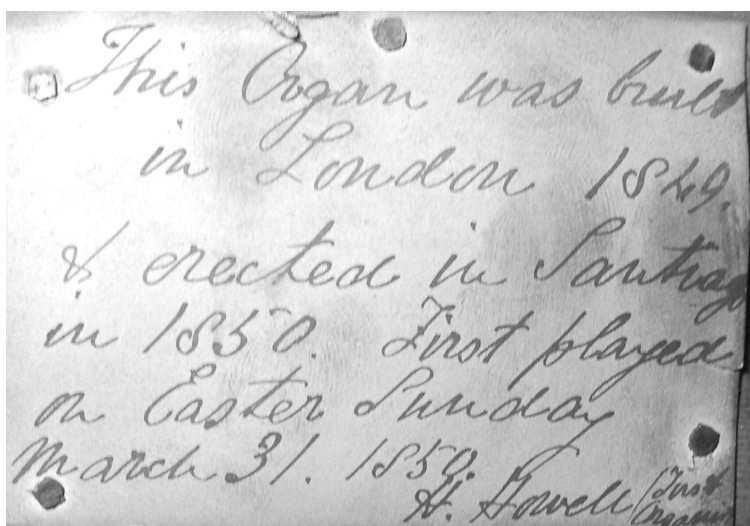 This Organ was built
in London 1849.
& erected in Santiago
in 1850. First played
on Easter Sunday
March 31. 1850.
H. Howell (First
Organist